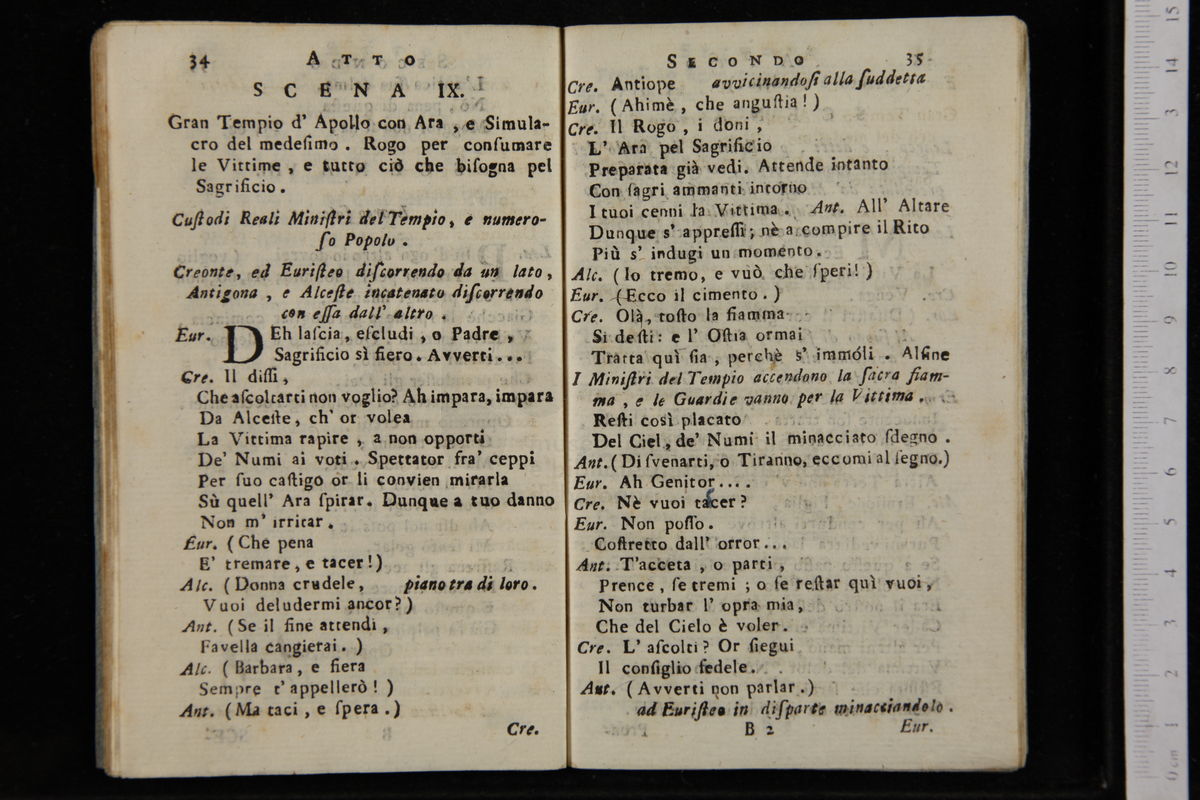 34 ATTO
SCENA IX.
Gran Tempio d' Apollo con Ara , e Simula-
cro del medeſimo . Rogo per conſumare
le Vittime , e tutto ciò che biſogna pel
Sagrificio .
Cuſtodi Reali Miniſtri del Tempio, e numero-
ſo Popolo .
Creonte, ed Euriſteo diſcorrendo da un lato,
Antigona , e Alceſte incatenato diſcorrendo
con eſſa dall' altro .
Eur. DEh laſcia, eſcludi , o Padre ,
Sagrificio sì fiero. Avverti...
Cre. Il diſſi,
Che aſcoltarti non voglio? Ah impara, impara
Da Alceſte, ch' or volea
La Vittima rapire , a non opporti
De' Numi ai voti . Spettator fra' ceppi
Per ſuo caſtigo or li convien mirarla
Sù quell' Ara ſpirar. Dunque a tuo danno
Non m' irritar .
Eur. (Che pena
E' tremare, e tacer!)
Alc. (Donna crudele, piano tra di loro.
Vuoi deludermi ancor?)
Ant. (Se il fine attendi ,
Favella cangierai. )
Alc. (Barbara, e fiera
Sempre t' appellerò! )
Ant. (Ma taci , e ſpera .)
Cre.
SECONDO 35
Cre. Antiope avvicinandoſi alla ſuddetta
Eur. (Ahimè , che anguſtia!)
Cre. Il Rogo , i doni ,
L' Ara pel Sagrificio
Preparata già vedi. Attende intanto
Con ſagri ammanti intorno
I tuoi cenni la Vittima . Ant. All' Altare
Dunque s' appreſſi; nè a compire il Rito
Più s' indugi un momento.
Alc. (Io tremo, e vuò che ſperi!)
Eur. (Ecco il cimento .)
Cre. Olà, toſto la fiamma
Si deſti: e l' Oſtia ormai
Tratta quì ſia , perchè s' immóli . Alfine
I Miniſtri del Tempio accendono la ſacra fiam-
ma , e le Guardie vanno per la Vittima .
Reſti così placato
Del Ciel, de' Numi il minacciato ſdegno .
Ant. (Di ſvenarti, o Tiranno, eccomi al ſegno.)
Eur. Ah Genitor....
Cre. Nè vuoi tacer?
Eur. Non poſſo.
Coſtretto dall' orror...
Ant. T'acceta , o parti ,
Prence, ſe tremi ; o ſe reſtar quì vuoi,
Non turbar l' opra mia,
Che del Cielo è voler.
Cre. L' aſcolti? Or ſiegui
Il conſiglio fedele.
Ant. (Avverti non parlar.)
ad Euriſteo in diſparte minacciandolo.
B 2 Eur.